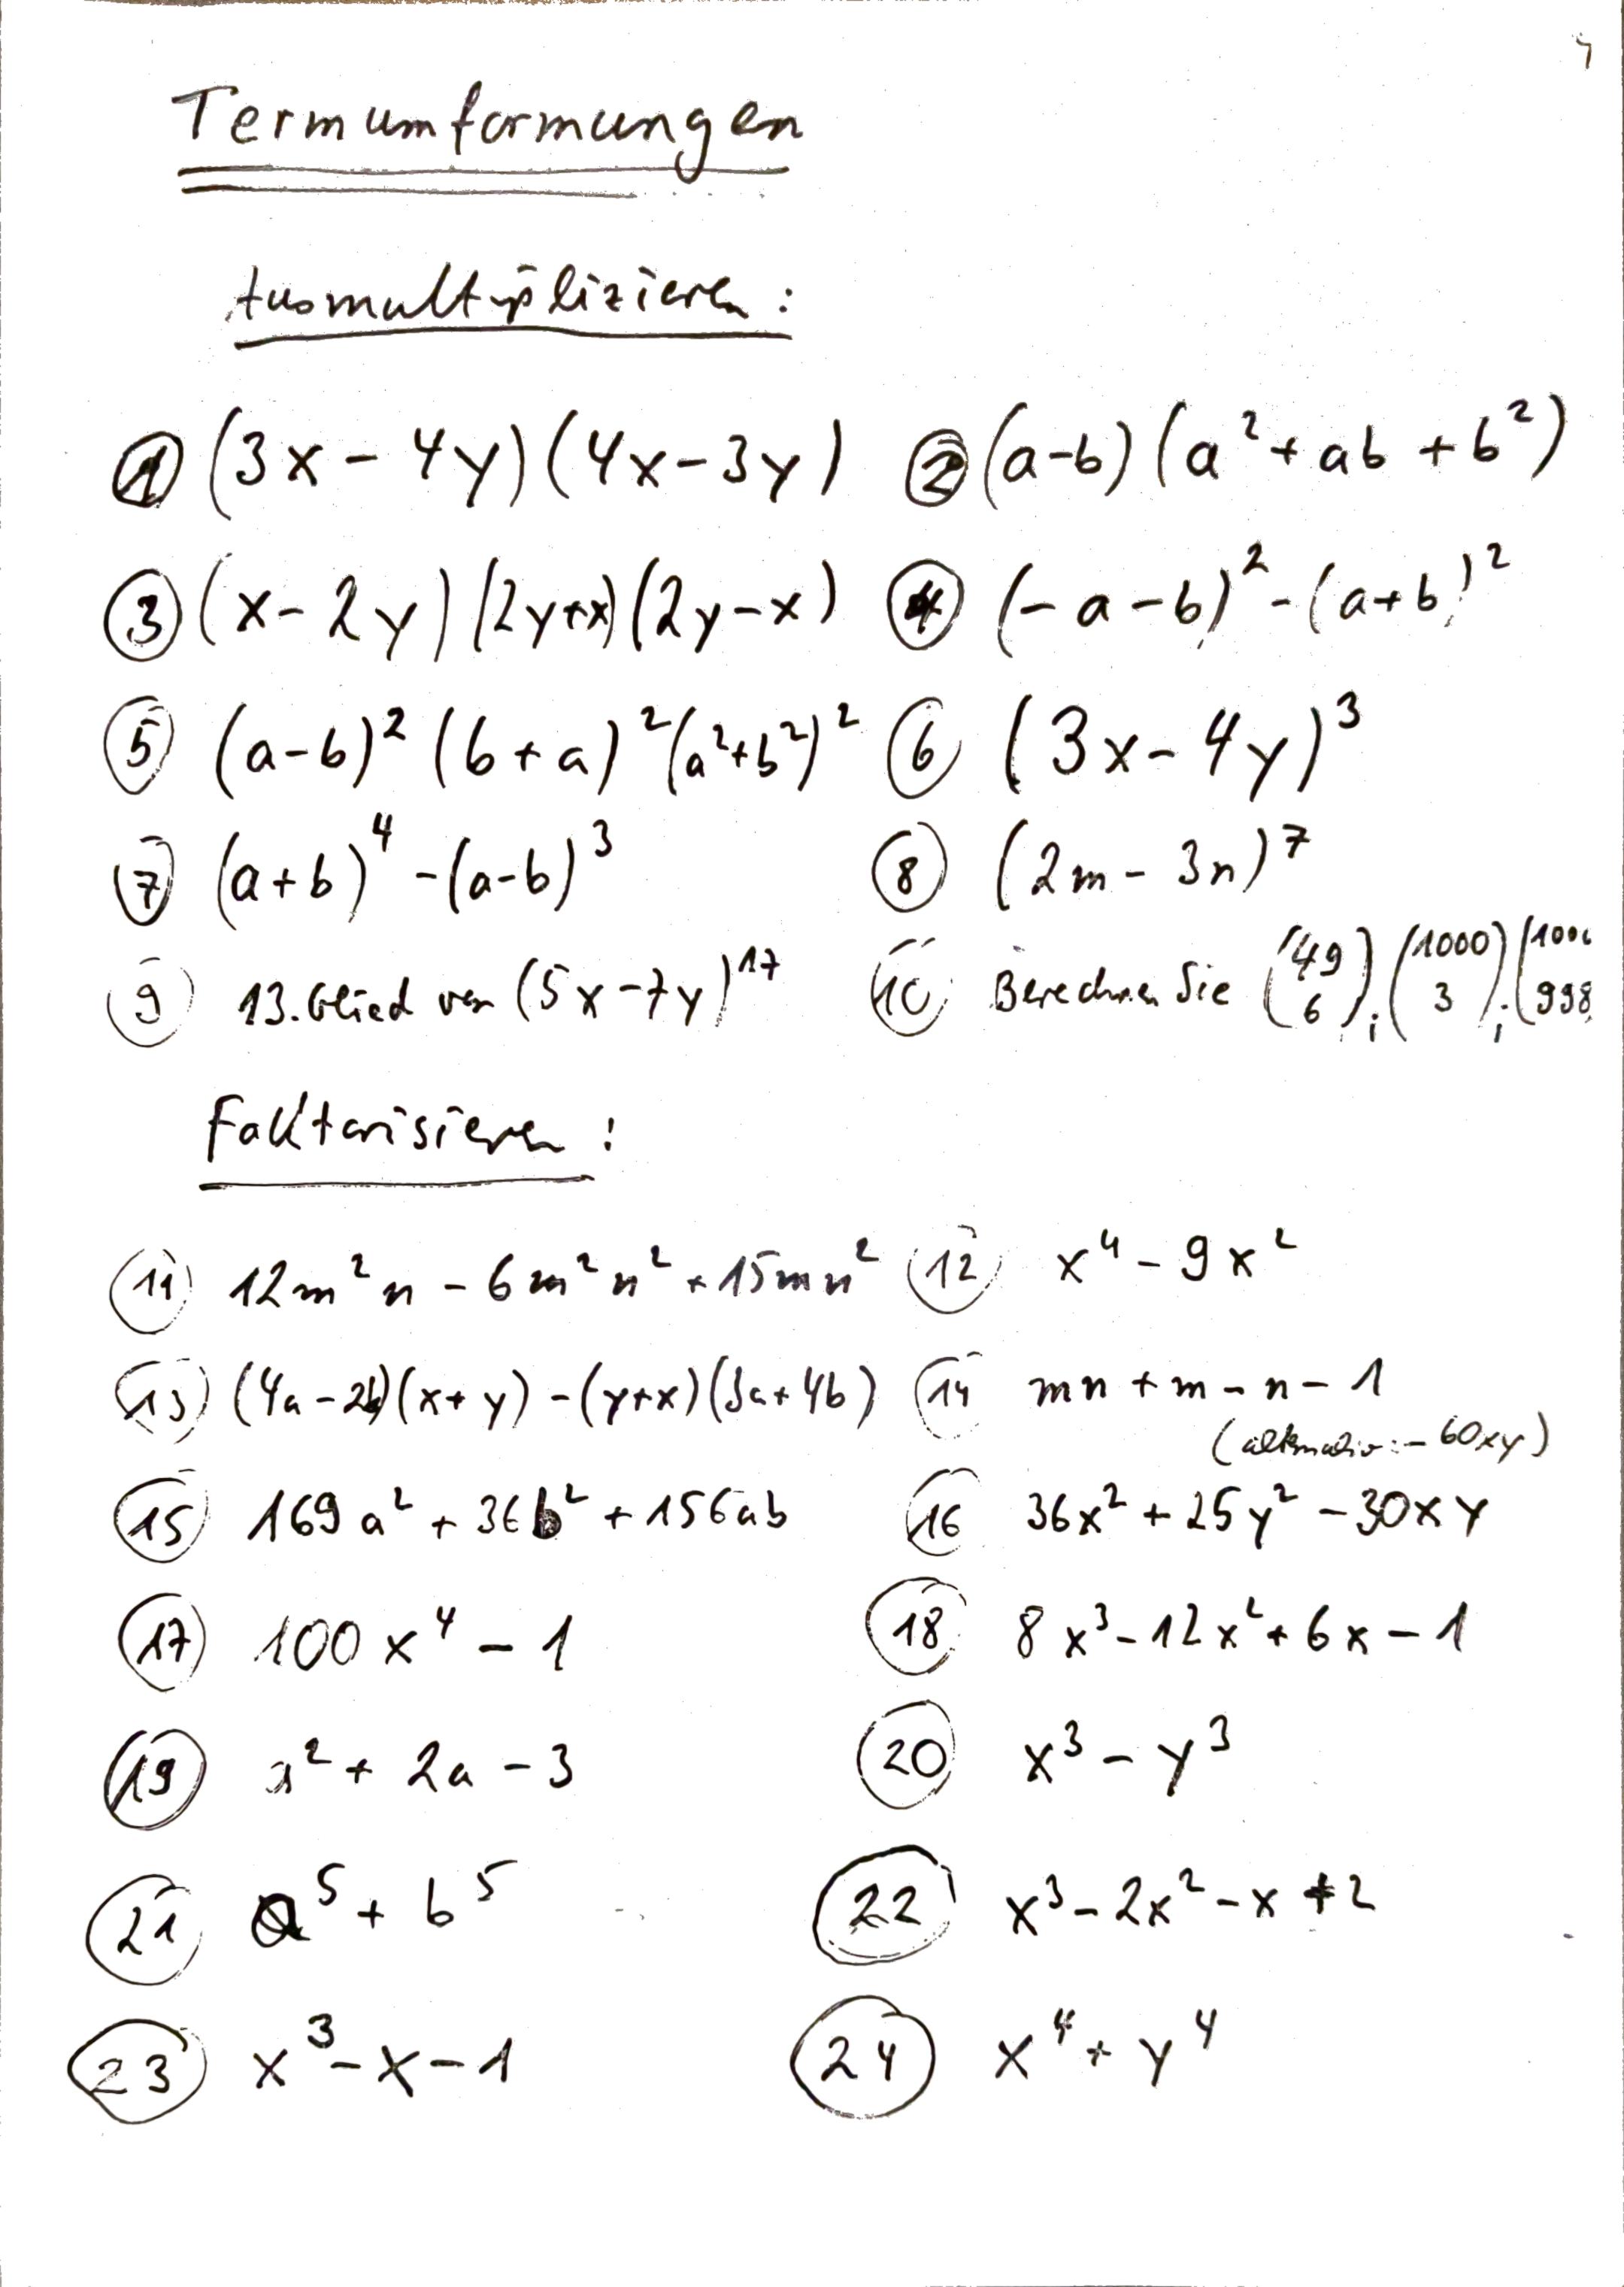 4
Termumformungen
Ausmultiplizieren:
① (3x - 4y)(4x - 3y) ② (a-b)(a² + ab + b²)
③ (x - 2y)(2y+x)(2y - x) ④ (-a - b)² - (a+b)²
⑤ (a-b)² (b+a)² (a²+b²)² ⑥ (3x - 4y)³
⑦ (a+b)⁴ - (a-b)³ ⑧ (2m - 3n)⁷
⑨ 13. Glied von (5x - 7y)¹⁷ ⑩ Berechnen Sie (49 6); (1000 3); (1000 998
Faktorisieren:
⑪ 12m²n - 6m²n² + 15mn² ⑫ x⁴ - 9x²
⑬ (4a - 2b)(x+y) - (y+x)(3a+4b) ⑭ mn + m - n - 1
(alternativ: - 60xy)
⑮ 169a² + 36b² + 156ab ⑯ 36x² + 25y² - 30xy
⑰ 100x⁴ - 1 ⑱ 8x³ - 12x² + 6x - 1
⑲ a² + 2a - 3 ⑳ x³ - y³
㉑ a⁵ + b⁵ ㉒ x³ - 2x² - x + 2
㉓ x³ - x - 1 ㉔ x⁴ + y⁴